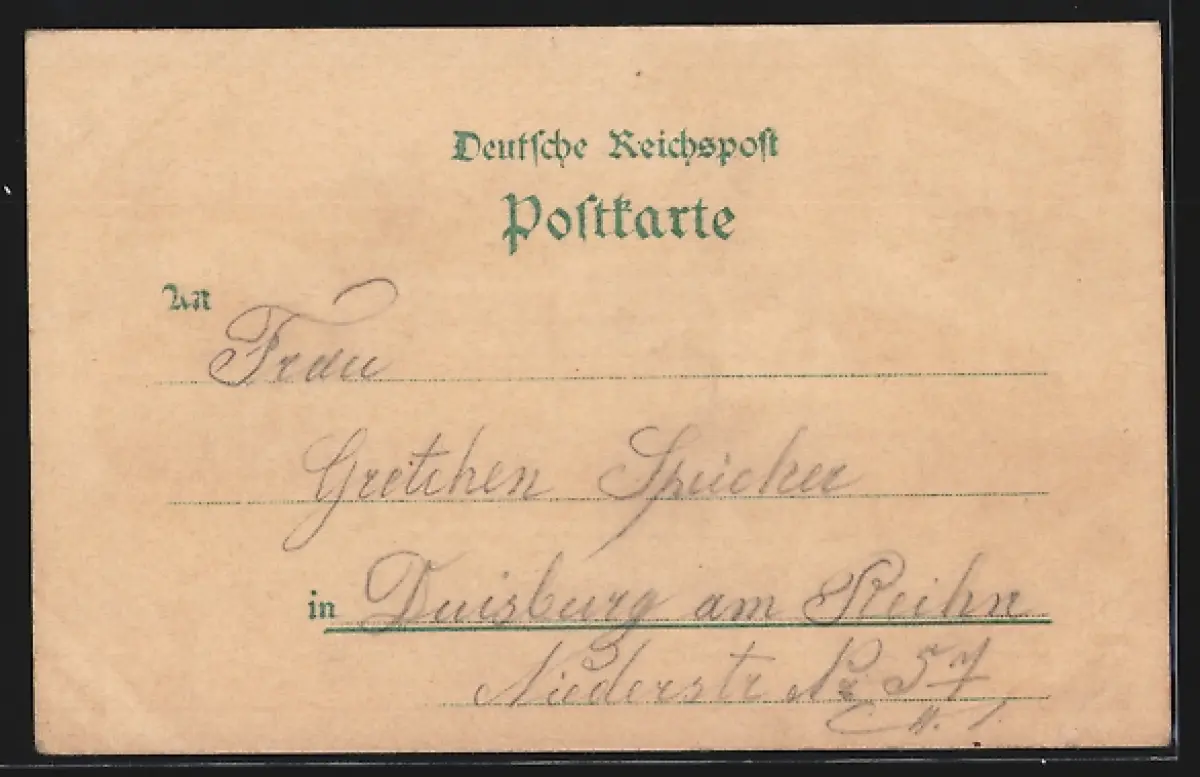 Deutsche Reichspost
Postkarte
An
Frau
Gretchen Spücker
in Duisburg am Reihn
Niederstr No 57